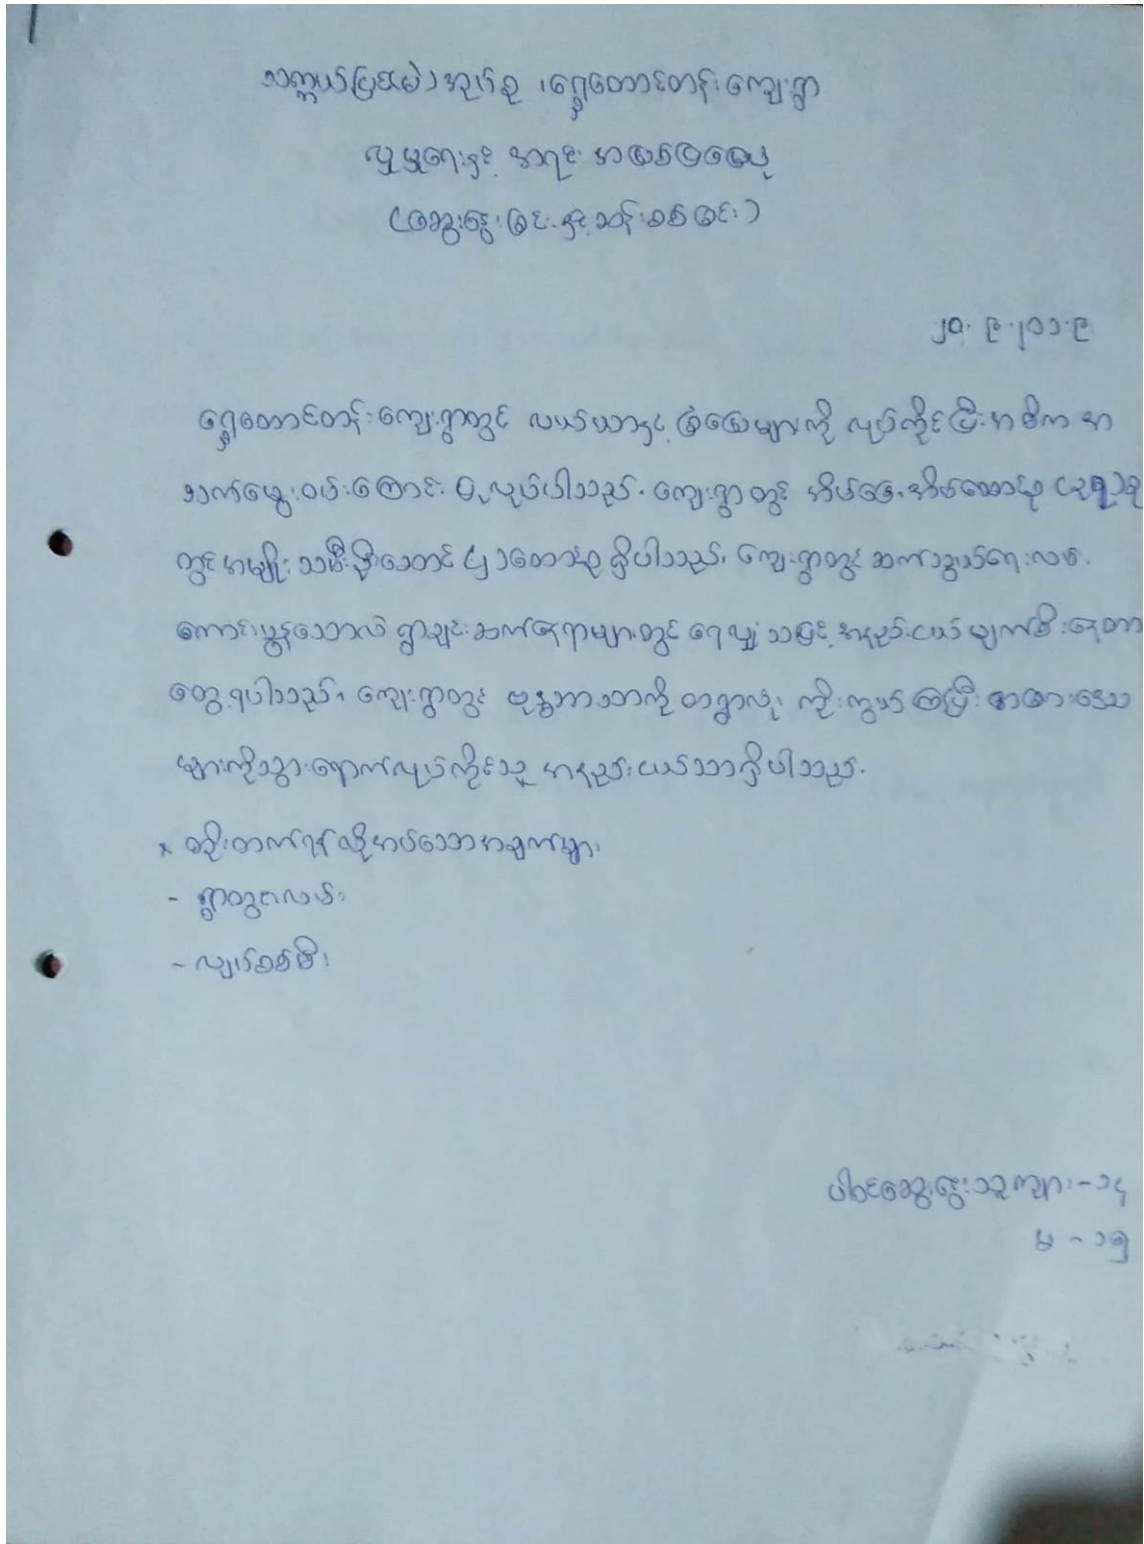 သက္ကယ်ပြင်(မြဲ) အုပ်စု ၊ ရွှေတောင်တန်း ကျေးရွာ
လူမှုရေးနှင့် အရင်း အမြစ်ပြမြေပုံ
(ဆွေးနွေးခြင်း နှင့် ဆန်းစစ်ခြင်း)
၂၀. ၉. ၂၀၁၉
ရွှေတောင်တန်း ကျေးရွာတွင် လယ်ယာနှင့် ခြံမြေများကို လုပ်ကိုင်ပြီး အဓိက အ
သက်မွေးဝမ်းကြောင်း ပြုလုပ်ပါသည်. ကျေးရွာတွင် အိမ်ခြေ, အိမ်ထောင်စု စု
တွင် အမျိုးသမီး ဦးဆောင် ၄၂ ထောင်စု ရှိပါသည်၊ ကျေးရွာတွင် ဆက်သွယ်ရေးလမ်း
ကောင်းမွန်သော်လဲ ရွာချင်းဆက်နေရာများတွင် ရေလျှံသဖြင့် အနည်းငယ် ပျက်စီးနေတာ
တွေ့ရပါသည်၊ ကျေးရွာတွင် ဗုဒ္ဓဘာသာကို တရွာလုံး ကိုးကွယ်ကြပြီး အခြားဒေသ
များကိုသွားရောက်လုပ်ကိုင်သူ အနည်းငယ်သာရှိပါသည်.
× တိုးတက်ရန် လိုအပ်သောအချက်များ
- ရွာတွင်းလမ်း
- လျှပ်စစ်မီး
ပါဝင်ဆွေးနွေးသူ ကျား - ၁၄
မ - ၁၅